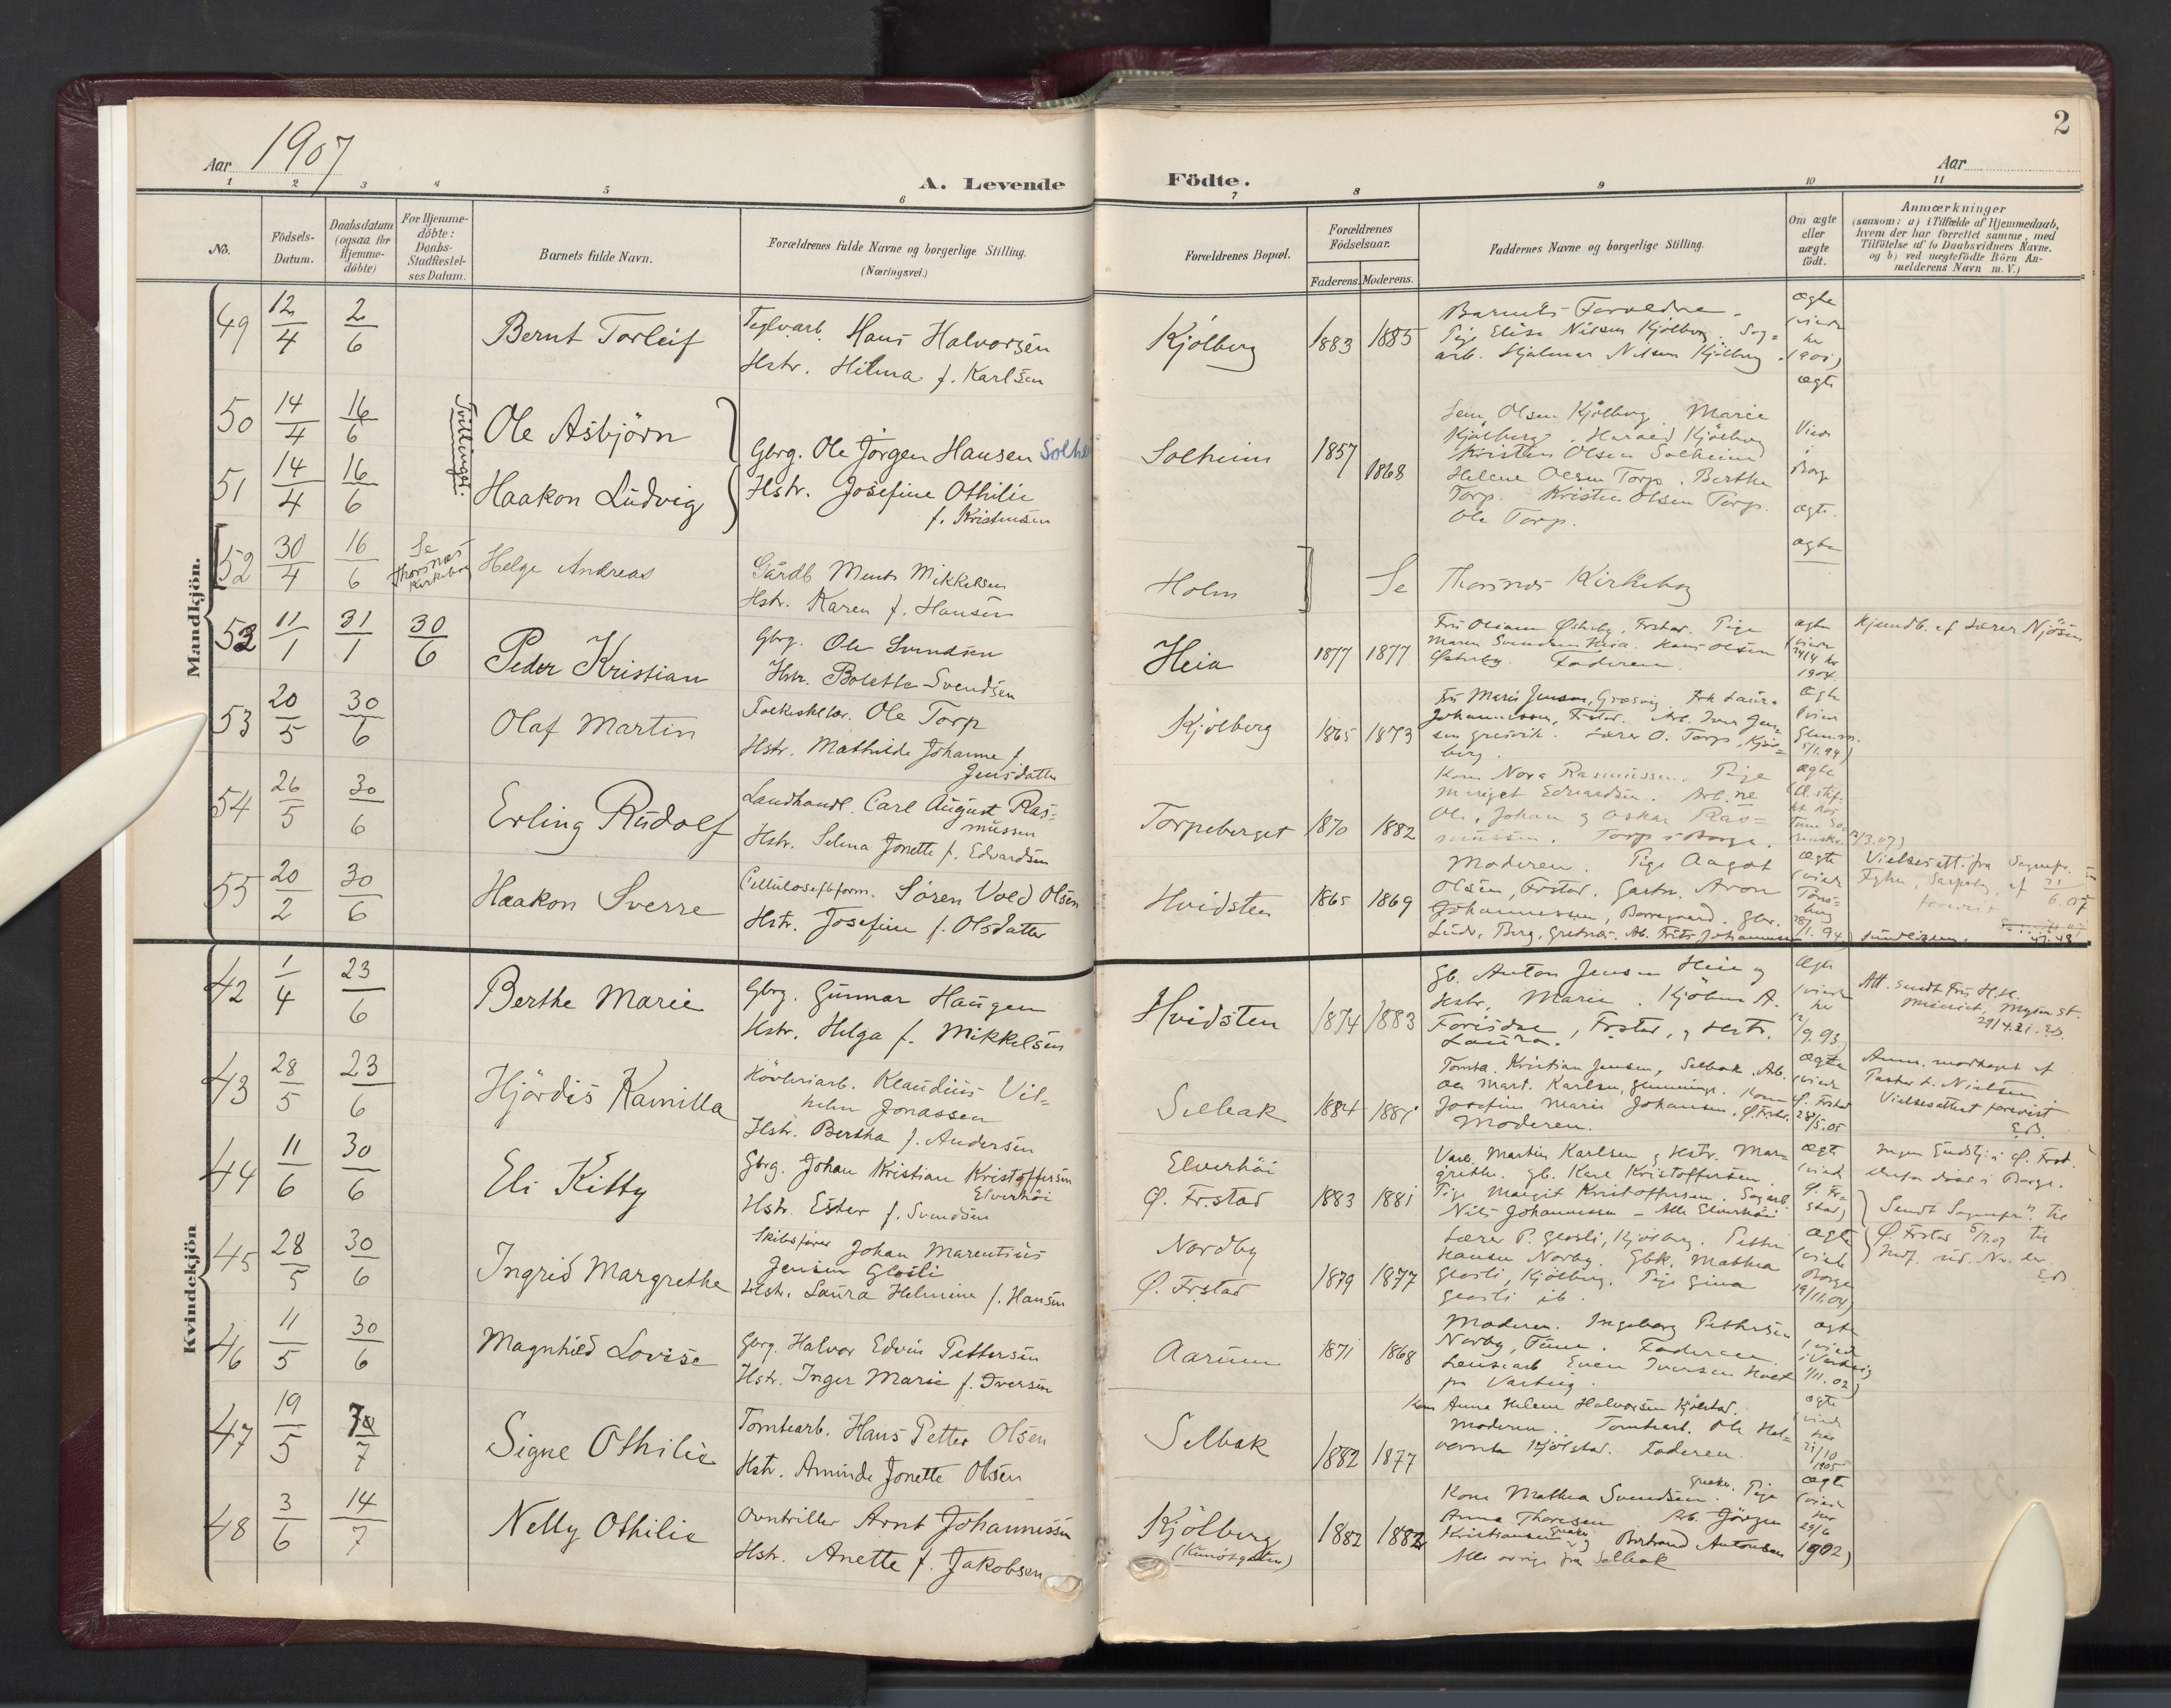 Aar 1907
A. Levende Födte.
Aar
2
1 2 3 4 5 6 7 8 9 10 11
No.
Födsels-Datum.
Daabsdatum (ogsaa for Hjemme-döbte)
For Hjemme-döbte: Daabs-Stadfæstel-ses Datum.
Barnets fulde Navn.
Forældrenes fulde Navne og borgerlige Stilling. (Næringsvei.)
Forældrenes Bopæl.
Forældrenes Födselsaar.
Faderens. Moderens.
Faddernes Navne og borgerlige Stilling.
Om ægte eller uægte födt.
Anmærkninger
(saasom: a) i Tilfælde af Hjemmedaab,
hvem der har forrettet samme, med
Tilföielse af to Daabsvidners Navne.
og b) ved uægtefödte Börn An-
melderens Navn m. V.)
Mandkjön.
49 12/4 2/6 Bernt Torleif
Teglv.arb. Hans Halvorsen
Hstr. Hilma f. Karlsen
Kjölberg 1883 1885
Barnets Forældre.
Pige Elise Nilsen Kjölberg. Sag=
arb. Hjalmar Nilsen Kjölberg.
ægte
(viede
her
1901)
Tvillinger.
50 14/4 16/6 Ole Asbjörn
51 14/4 16/6 Haakon Ludvig
Gbrg. Ole Jörgen Hansen Solhei
Hstr. Josefine Othilie
f. Kristensen
Solheim 1857 1868
Olsen Kjölberg. Marie
Kjölberg. Harald Kjölberg
Kristen Olsen Solheim
Helene Olsen Torp. Berthe
Torp. Kristen Olsen Torp.
Ole Torp.
ægte
Viede
i
Borge
ægte.
52 30/4 16/6 Se Thorsnæs Kirkebog
Helge Andreas
Gårdb Ments Mikkelsen
Hstr. Karen f. Hansen
Holm Se Thorsnæs Kirkebog
ægte
52 11/1 31/1 30/6 Peder Kristian
Gbrg. Ole Svendsen
Hstr. Bolette Svendsen
Heia 1877 1877
Maren Svendsen Heia. Hans Olsen
Østeby. Faderen.
ægte
(viede
24/4 her
1904.
Hjemdb. af Lærer Njösen
53 20/5 30/6 Olaf Martin
Folkesklær. Ole Torp
Hstr. Mathilde Johanne f.
Jensdatter
Kjölberg 1865 1873
Fru Marie Jensen, Græsvig. Frk Laura
Johannessen, Frstad. Arb. Iver Jen=
sen Gresvik. Lærer O. Torp, Kjöl=
berg.
Ægte
(viede
5/1.99)
54 26/5 30/6 Erling Rudolf
Landhandl. Carl August Ras=
mussen
Hstr. Selma Jonette f. Edvardsen
Torpeberget 1870 1882
Kone Nora Rasmussen. Pige
Margit Edvardsen. Arb.ne
Ole, Johan og Oskar Ras=
mussen. Torp i Borge.
ægte
55 20/2 30/6 Haakon Sverre
Cellulosefbform. Sören Vold Olsen
Hstr. Josefine f. Olsdatter
Hvidsten 1865 1869
Moderen. Pige Aagot
Olsen, Frstad. Gartn. Aron
Johannessen, Borregaard. Gbr.
Ludv. Berg, Gretnæs. Ab. Frits Johannessen
ægte
(viede
Töns=
berg
Vielsesatt. fra Sognepr.
forevist
Kvindekjön
42 1/4 23/6 Berthe Marie
Gbrg. Gunnar Haugen
Hstr. Helga f. Mikkelsen
Hvidsten 1874 1883
Gb. Anton Jensen Heie og
Hstr. Marie. Kjöbm A.
Forisdal, Frstad, og Hstr.
Laura.
Ægte
(viede
her
29/4.21. EB.
43 28/5 23/6 Hjördis Kamilla
Hövleriarb. Klaudius Vil=
helm Jonassen
Hstr. Bertha f. Andersen
Selbak 1884 1881
Tomta. Kristian Jensen, Selbak. Ab.
Ole Mart. Karlsen, Glemminge. Kone
Josefine Marie Johansen, Ø.Frst.
Moderen.
Ægte
(viede
Ø. Frstad
28/5.05
Anm. modtaget af
Pastor L. Nielsen.
Vielsesattest forevist
EB.
44 11/6 30/6 Eli Kitty
Gbrg. Johan Kristian Kristoffersen
Elverhöi
Hstr. Ester f. Svendsen
Elverhöi
Ø. Frstad 1883 1881
Varb. Martin Karlsen og Hstr. Mar=
grethe. Gb. Karl Kristoffersen.
Pige Margit Kristoffersen. Sagarb.
Nils Johannessen – Alle Elverhöi
ægte
(viede
Ø. Fr=
stad)
45 28/5 30/6 Ingrid Margrethe
Skibsförer Johan Marentius
Jensen Glosli
Hstr. Laura Helmine f. Hansen
Nordby
Ø. Frstad 1879 1877
Lærer P. Glosli, Kjölberg. Petter
Hansen Norby. Gbk. Mathea
Glosli, Kjölberg. Pige Gina
Glosli ib.
Ægte
(viede
Borge
19/11.04)
46 11/5 30/6 Magnhild Lovise
Gbrg. Halvor Edvin Pettersen
Hstr. Inger Marie f. Iversen
Aarum 1871 1868
Moderen. Ingeborg Pettersen
Norby, Tune. Faderen.
Lenscarb Even Iversen Holt
pr Varteig.
ægte
(viede
i Varteig
1/11.02)
47 19/5 7/7 Signe Othilie
Tomtearb. Hans Petter Olsen
Hstr. Aminda Jonette Olsen
Selbak 1882 1877
Kone Anna Helene Halvorsen Kjölstad.
Moderen. Tomtearb. Ole Hal=
vorsen Kjölstad. Faderen.
ægte
(viede
her
21/10
1905
48 3/6 14/7 Nelly Othilie
Ovntriller Arnt Johannessen
Hstr. Anette f. Jakobsen
Kjölberg 1882 1882
Kone Mathea Svendsen, Greaker. Pige
Anna Thoresen Ab. Jörgen
Kristiansen Greaker og Bertrand Antonsen
Alle övrige fra Selbak
ægte
(viede
her
29/6
1902)